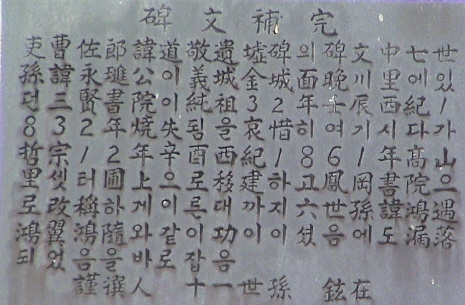 碑文補完
吏曹佐郎諱道敬遺墟碑의碑文中七世
孫諱永璡公이義城金城面晩川里에있
던三賢書院이純祖32年壬辰西紀1
832年燒失됨을哀惜히여기시다가
哲宗12年辛酉西紀1861年髙山
里셋터圃上으로移建하고鳳岡書院으
로改稱하게이른대까지六世孫諱鴻遇
鴻翼鴻隨와같이功이이셨음에도漏落
되었음을바로잡음
謹撰人 十一世孫 鉉在